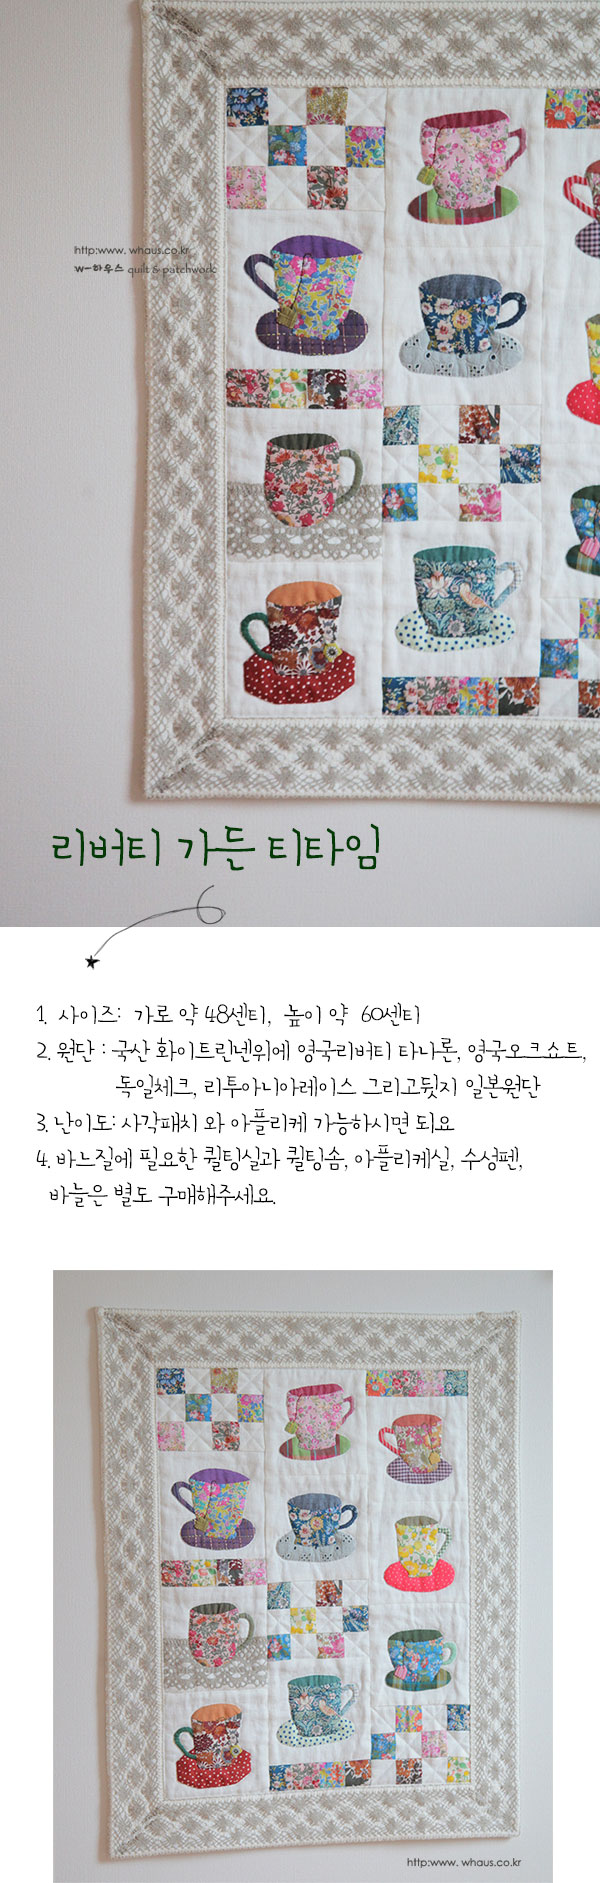 http:www. whaus.co.kr
w-하우스 quilt & patchwork
리버티 가든 티타임
1. 사이즈: 가로 약 48센티, 높이 약 60센티
2. 원단 : 국산 화이트린넨위에 영국리버티 타나론, 영국오크쇼트,
독일체크, 리투아니아레이스 그리고뒷지 일본원단
3. 난이도: 사각패치 와 아플리케 가능하시면 되요
4. 바느질에 필요한 퀼팅실과 퀼팅솜, 아플리케실, 수성펜,
바늘은 별도 구매해주세요.
http:www. whaus.co.kr